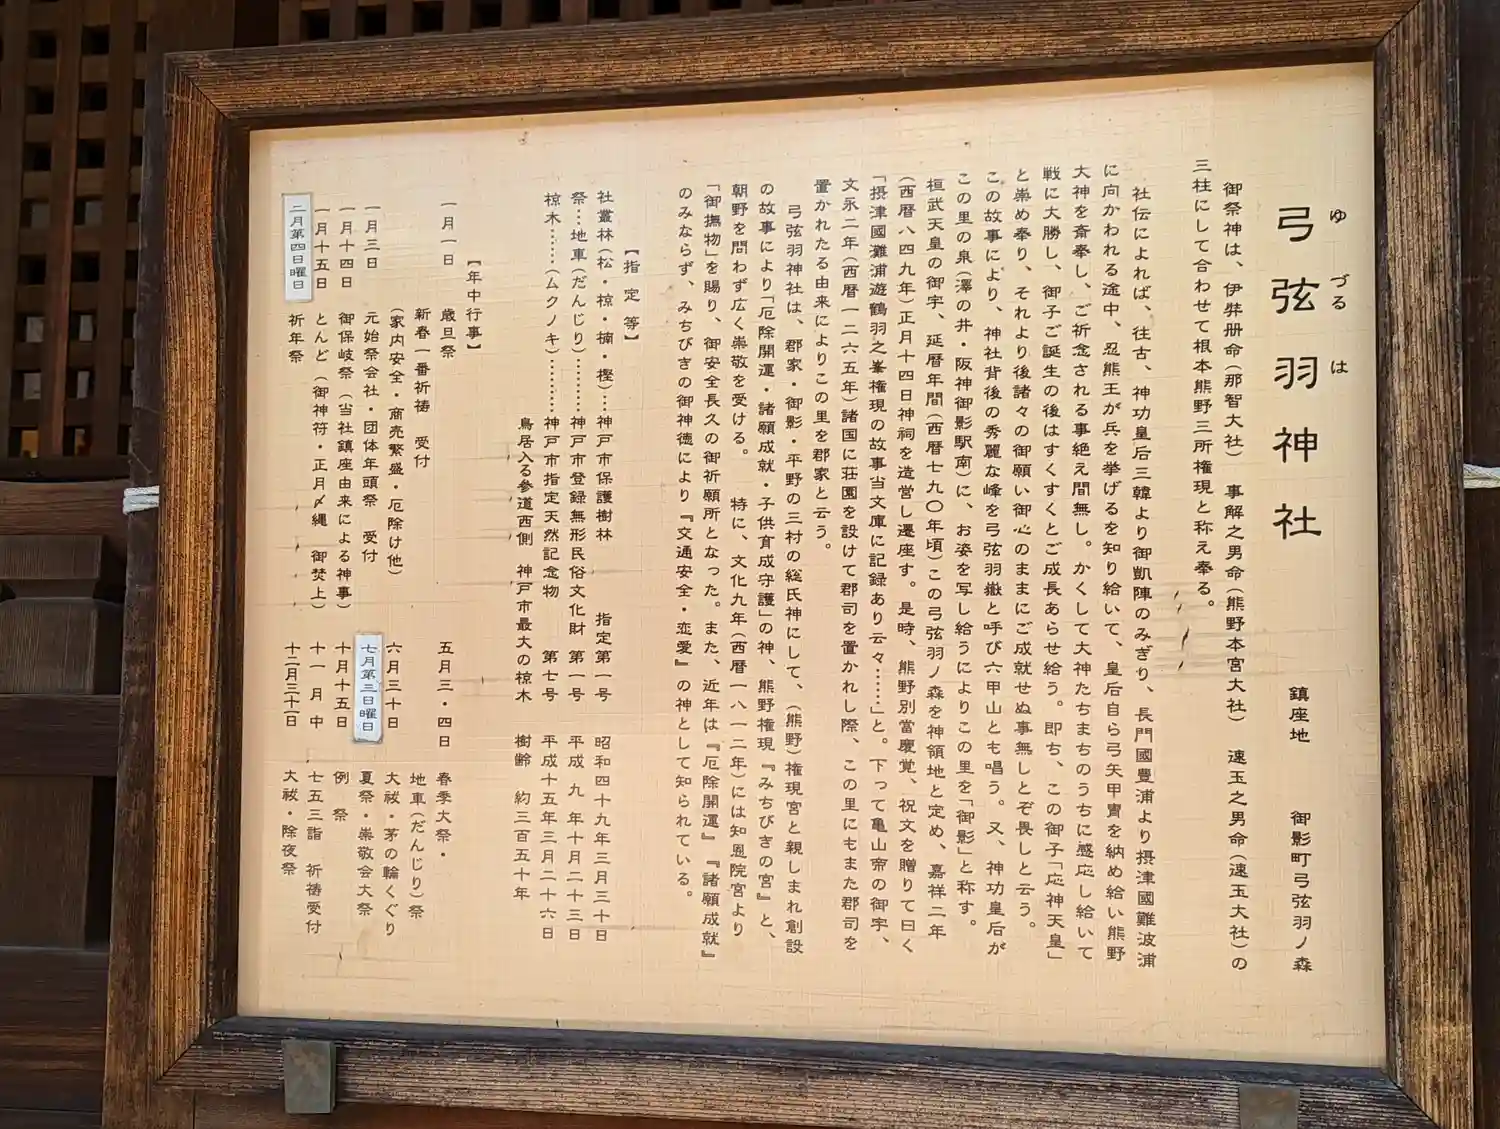 弓弦羽神社
ゆづるは
鎮座地　御影町弓弦羽ノ森
御祭神は、伊弉册命(那智大社)　事解之男命(熊野本宮大社)　速玉之男命(速玉大社)の
三柱にして合わせて根本熊野三所権現と称え奉る。
社伝によれば、往古、神功皇后三韓より御凱陣のみぎり、長門國豊浦より摂津國難波浦
に向かわれる途中、忍熊王が兵を挙げるを知り給いて、皇后自ら弓矢甲冑を納め給い熊野
大神を斎奉し、ご祈念される事絶え間無し。かくして大神たちまちのうちに感応し給いて
戦に大勝し、御子ご誕生の後はすくすくとご成長あらせ給う。即ち、この御子「応神天皇」
と崇め奉り、それより後諸々の御願い御心のままにご成就せぬ事無しとぞ畏しと云う。
この故事により、神社背後の秀麗な峰を弓弦羽嶽と呼び六甲山とも唱う。又、神功皇后が
この里の泉(澤の井・阪神御影駅南)に、お姿を写し給うによりこの里を「御影」と称す。
桓武天皇の御宇、延暦年間(西暦七九〇年頃)この弓弦羽ノ森を神領地と定め、嘉祥二年
(西暦八四九年)正月十四日神祠を造営し遷座す。是時、熊野別當慶覚、祝文を贈りて曰く
「摂津國灘浦遊鶴羽之峯権現の故事当文庫に記録あり云々……」と。下って亀山帝の御宇、
文永二年(西暦一二六五年)諸国に荘園を設けて郡司を置かれし際、この里にもまた郡司を
置かれたる由来によりこの里を郡家と云う。
弓弦羽神社は、郡家・御影・平野の三村の総氏神にして、(熊野)権現宮と親しまれ創設
の故事により「厄除開運・諸願成就・子供育成守護」の神、熊野権現『みちびきの宮』と、
朝野を問わず広く崇敬を受ける。　特に、文化九年(西暦一八一二年)には知恩院宮より
「御撫物」を賜り、御安全長久の御祈願所となった。また、近年は『厄除開運』『諸願成就』
のみならず、みちびきの御神徳により『交通安全・恋愛』の神として知られている。
【指定等】
社叢林(松・椋・楠・樫)…神戸市保護樹林　指定第一号　昭和四十九年三月三十日
祭…地車(だんじり)………神戸市登録無形民俗文化財　第一号　平成　九　年十月二十三日
椋木……(ムクノキ)………神戸市指定天然記念物　第七号　平成十五年三月二十六日
鳥居入る参道西側　神戸市最大の椋木　樹齢　約三百五十年
【年中行事】
一月一日　歳旦祭
新春一番祈祷　受付
(家内安全・商売繁盛・厄除け他)
一月三日　元始祭会社・団体年頭祭　受付
一月十四日　御保岐祭(当社鎮座由来による神事)
一月十五日　とんど(御神符・正月〆縄　御焚上)
二月第四日曜日　祈年祭
五月三・四日　春季大祭・
地車(だんじり)祭
六月三十日　大祓・茅の輪くぐり
七月第三日曜日　夏祭・崇敬会大祭
十月十五日　例　祭
十一月中　七五三詣　祈祷受付
十二月三十一日　大祓・除夜祭